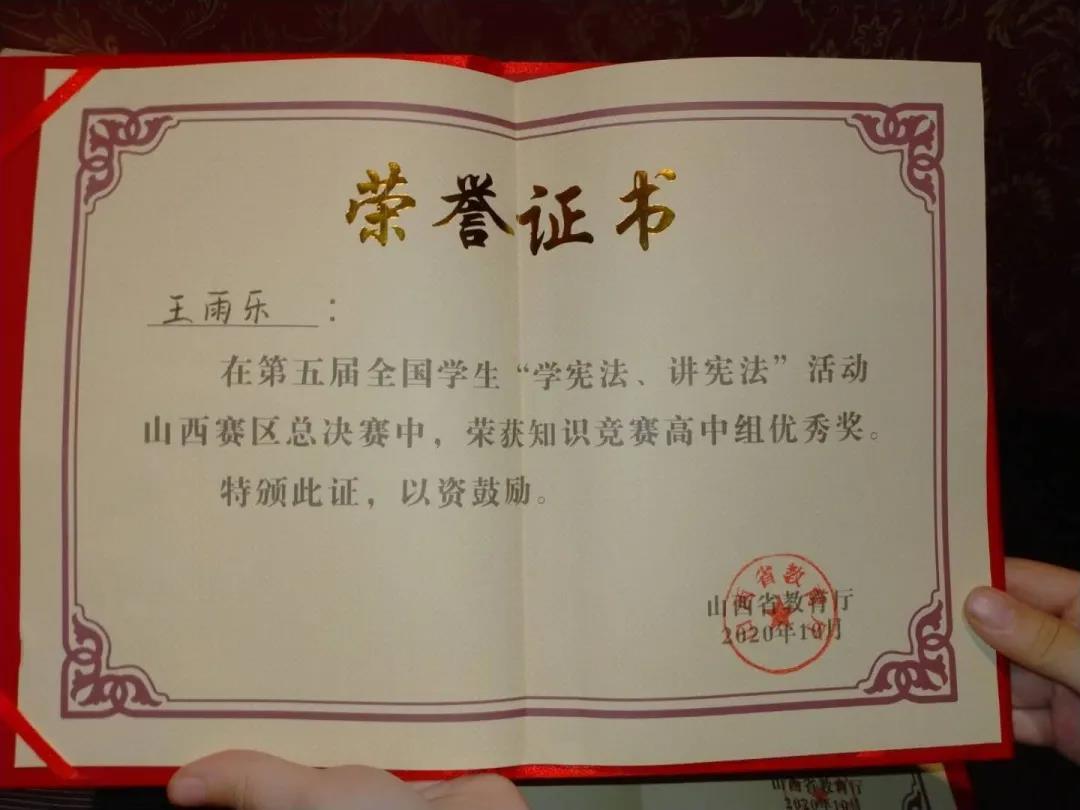 荣誉证书
王雨乐：
在第五届全国学生“学宪法、讲宪法”活动
山西赛区总决赛中，荣获知识竞赛高中组优秀奖。
特颁此证，以资鼓励。
山西省教育厅
2020年10月
山西省教育厅
2020年10月